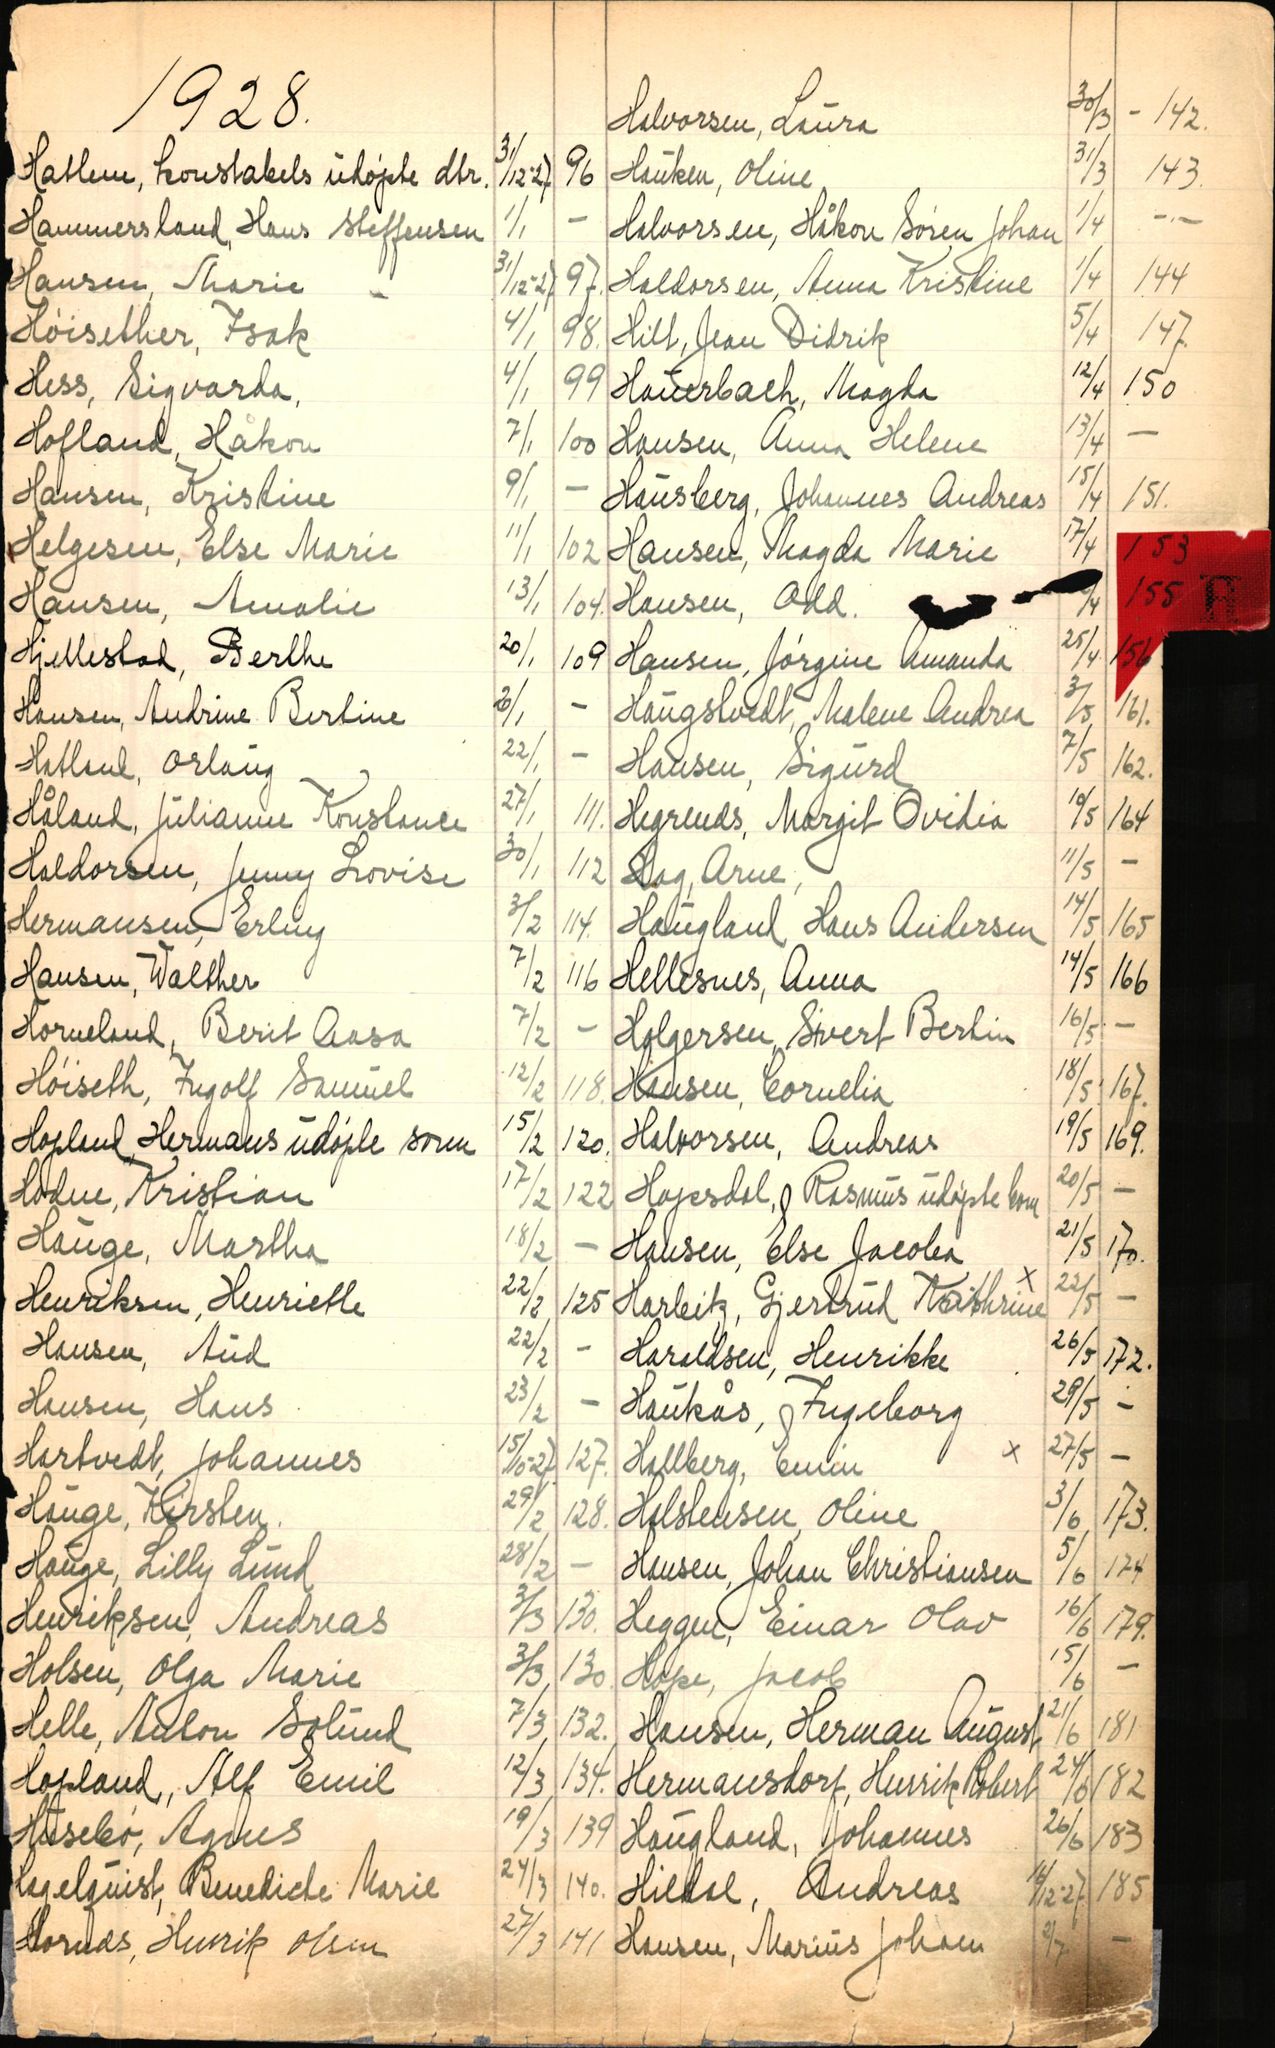 1928.
Hatlem, konstabels udøpte dtr. 31/12-27 96
Hammersland, Hans Steffensen 1/1 -
Hansen, Marie - 31/12-27 97.
Høisether, Isak 4/1 98.
Hess, Sigvarda, 4/1 99
Hofland, Håkon 7/1 100
Hansen, Kristine 9/1 -
Helgesen, Else Marie 11/1 102
Hansen, Amalie 13/1 104.
Hjellestad, Berthe 20/1 109
Hansen, Andrine Bertine 21/1 -
Hatland, Orlaug 22/1 -
Håland, Julianne Konstance 27/1 111.
Haldorsen, Jenny Lovise 30/1 112
Hermansen, Erling 3/2 114.
Hansen, Walther 7/2 116
Horneland, Berit Aasa 7/2 -
Høiseth, Ingolf Samuel 12/2 118.
Hopland, Hermans udøpte sønn 15/2 120.
Hodne, Kristian 17/2 122
Hauge, Martha 18/2 -
Henriksen, Henriette 22/2 125
Hansen, Aud 22/2 -
Hansen, Hans 23/2 -
Hartvedt, Johannes 15/10-27 127.
Hauge, Kirsten. 29/2 128.
Hauge, Lilly Lund 28/2 -
Henriksen, Andreas 3/3 130.
Holsen, Olga Marie 3/3 130
Helle, Anton Solund 7/3 132.
Hopland, Alf Emil 12/3 134.
Husebø, Agnes 19/3 139
Hagelquist, Benedicte Marie 24/3 140.
Hornæs, Henrik Olsen 27/3 141
Halvorsen, Laura 30/3 - 142.
Hauken, Oline 31/3 143.
Halvorsen, Håkon Søren Johan 1/4 -.-
Haldorsen, Anna Kristine 1/4 144
Hilt, Jean Didrik 5/4 147.
Hauerbach, Magda 12/4 150
Hansen, Anna Helene 13/4 -
Hausberg, Johannes Andreas 15/4 151.
Hansen, Magda Marie 17/4 153
Hansen, Odd. /4 155 H
Hansen, Jørgine Amanda 25/4 156
Haugstvedt, Malene Andrea 3/5 161.
Hansen, Sigurd 7/5 162.
Hegrenæs, Margit Ovidia 10/5 164
Hag, Arne, 11/5 -
Haugland Hans Andersen 14/5 165
Hellesnes, Anna 14/5 166
Holgersen, Sivert Bertin 16/5 -
Hansen, Cornelia 18/5 167.
Halvorsen, Andreas 19/5 169.
Hopsdal, Rasmus udøpte 20/5 -
Hansen, Else Jacobea 21/5 170.
Harbitz, Gjertrud Kathrine x 22/5 -
Haraldsen, Henrikke 26/5 172.
Haukås, Ingeborg 29/5 -
Hallberg, Emin x 27/5 -
Holstensen, Oline 3/6 173.
Hansen, Johan Christiansen 5/6 174
Heggen, Einar Olav 16/6 179.
Hope, Jacob 15/6 -
Hansen, Herman August 21/6 181
Hermansdorf, Henrik Robert 24/6 182
Haugland, Johannes 26/6 183
Hildal, Andreas 14/12-27. 185
Hansen, Marius Johan 2/7 -